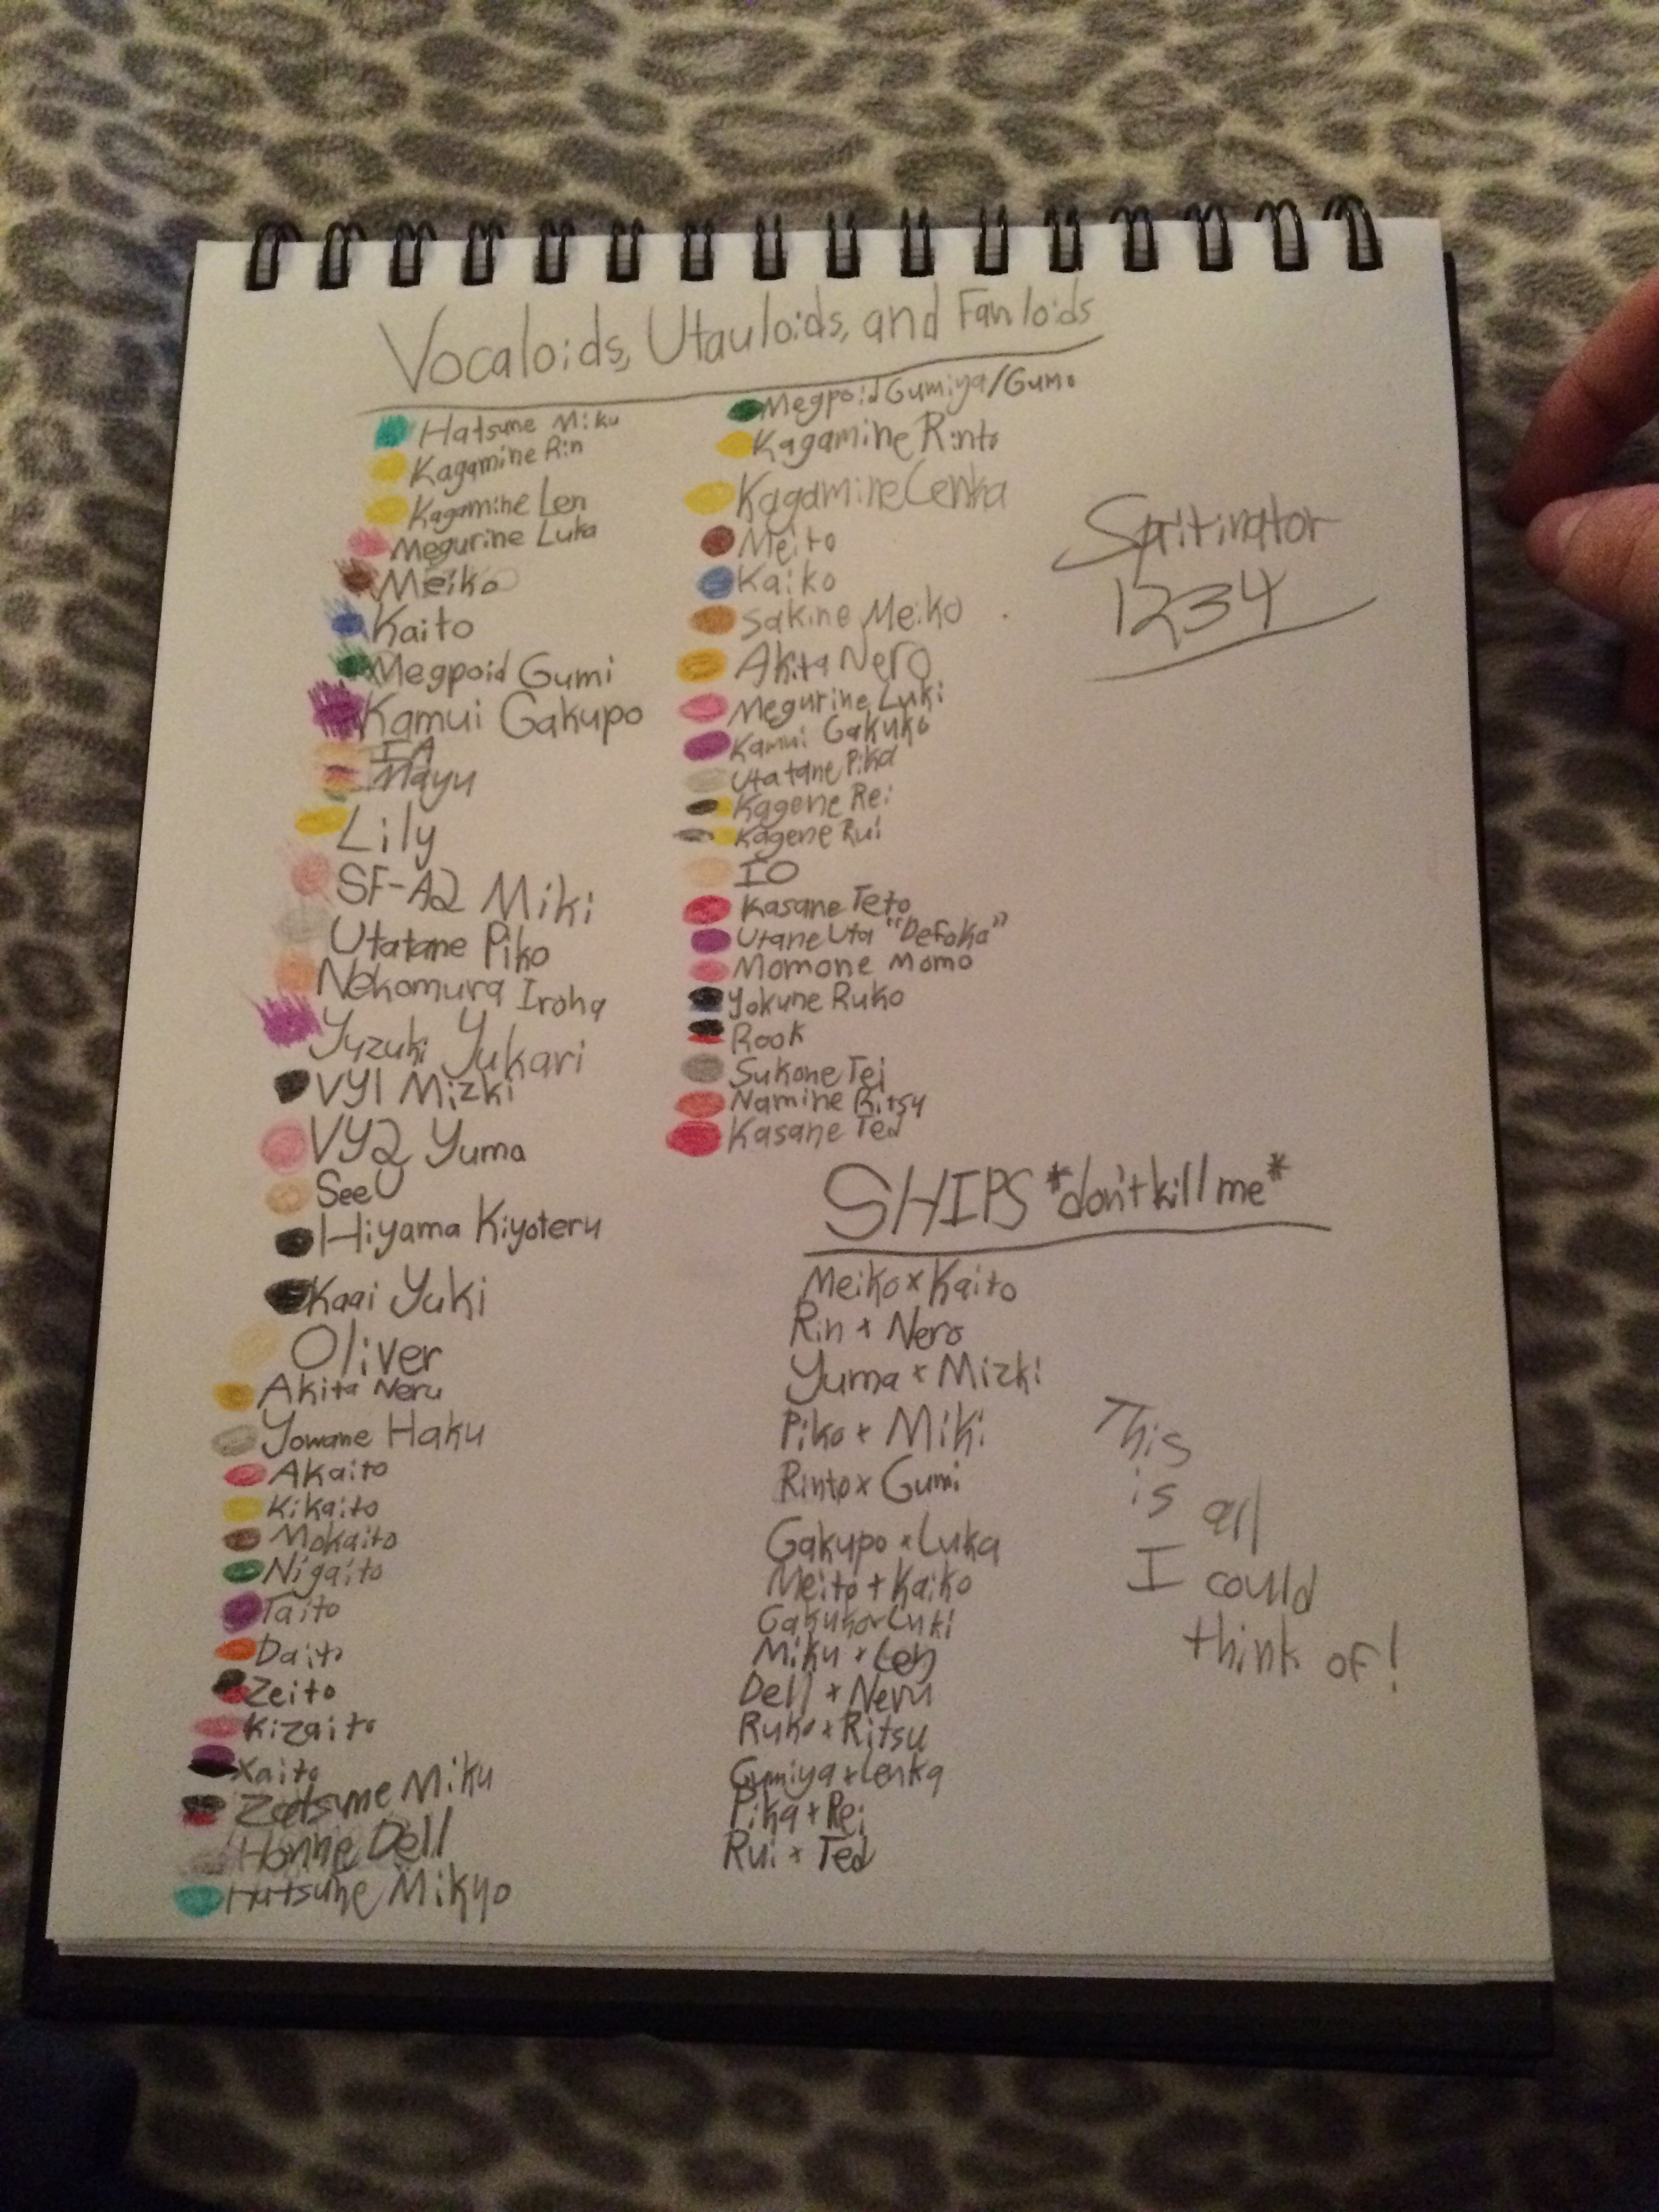 Vocaloids, Utauloids, and Fanloids
Hatsune Miku
Kagamine Rin
Kagamine Len
Megurine Luka
Meiko
Kaito
Megpoid Gumi
Kamui Gakupo
IA
Mayu
Lily
SF-A2 Miki
Utatane Piko
Nekomura Iroha
Yuzuki Yukari
VY1 Mizki
VY2 Yuma
SeeU
Hiyama Kiyoteru
Kaai Yuki
Oliver
Akita Neru
Yowane Haku
Akaito
Kikaito
Mokaito
Nigaito
Taito
Daito
Zeito
Kizaito
Xaito
Zatsune Miku
Honne Dell
Hatsune Mikuo
Megpoid Gumiya/Gumo
Kagamine Rinto
Kagamine Lenka
Meito
Kaiko
Sakine Meiko
Akita Nero
Megurine Luki
Kamui Gakuko
Utatane Pika
Kagene Rei
Kagene Rui
IO
Kasane Teto
Utane Uta "Defoko"
Momone Momo
Yokune Ruko
Rook
Sukone Tei
Namine Ritsu
Kasane Ted
1234
SHIPS *don't kill me*
Meiko x Kaito
Rin x Nero
Yuma x Mizki
Piko x Miki
Rinto x Gumi
Gakupo x Luka
Meito + Kaiko
Gakuko x Luki
Miku x Len
Dell + Neru
Ruko x Ritsu
Gumiya x Lenka
Pika + Rei
Rui x Ted
This
is all
I could
think of!